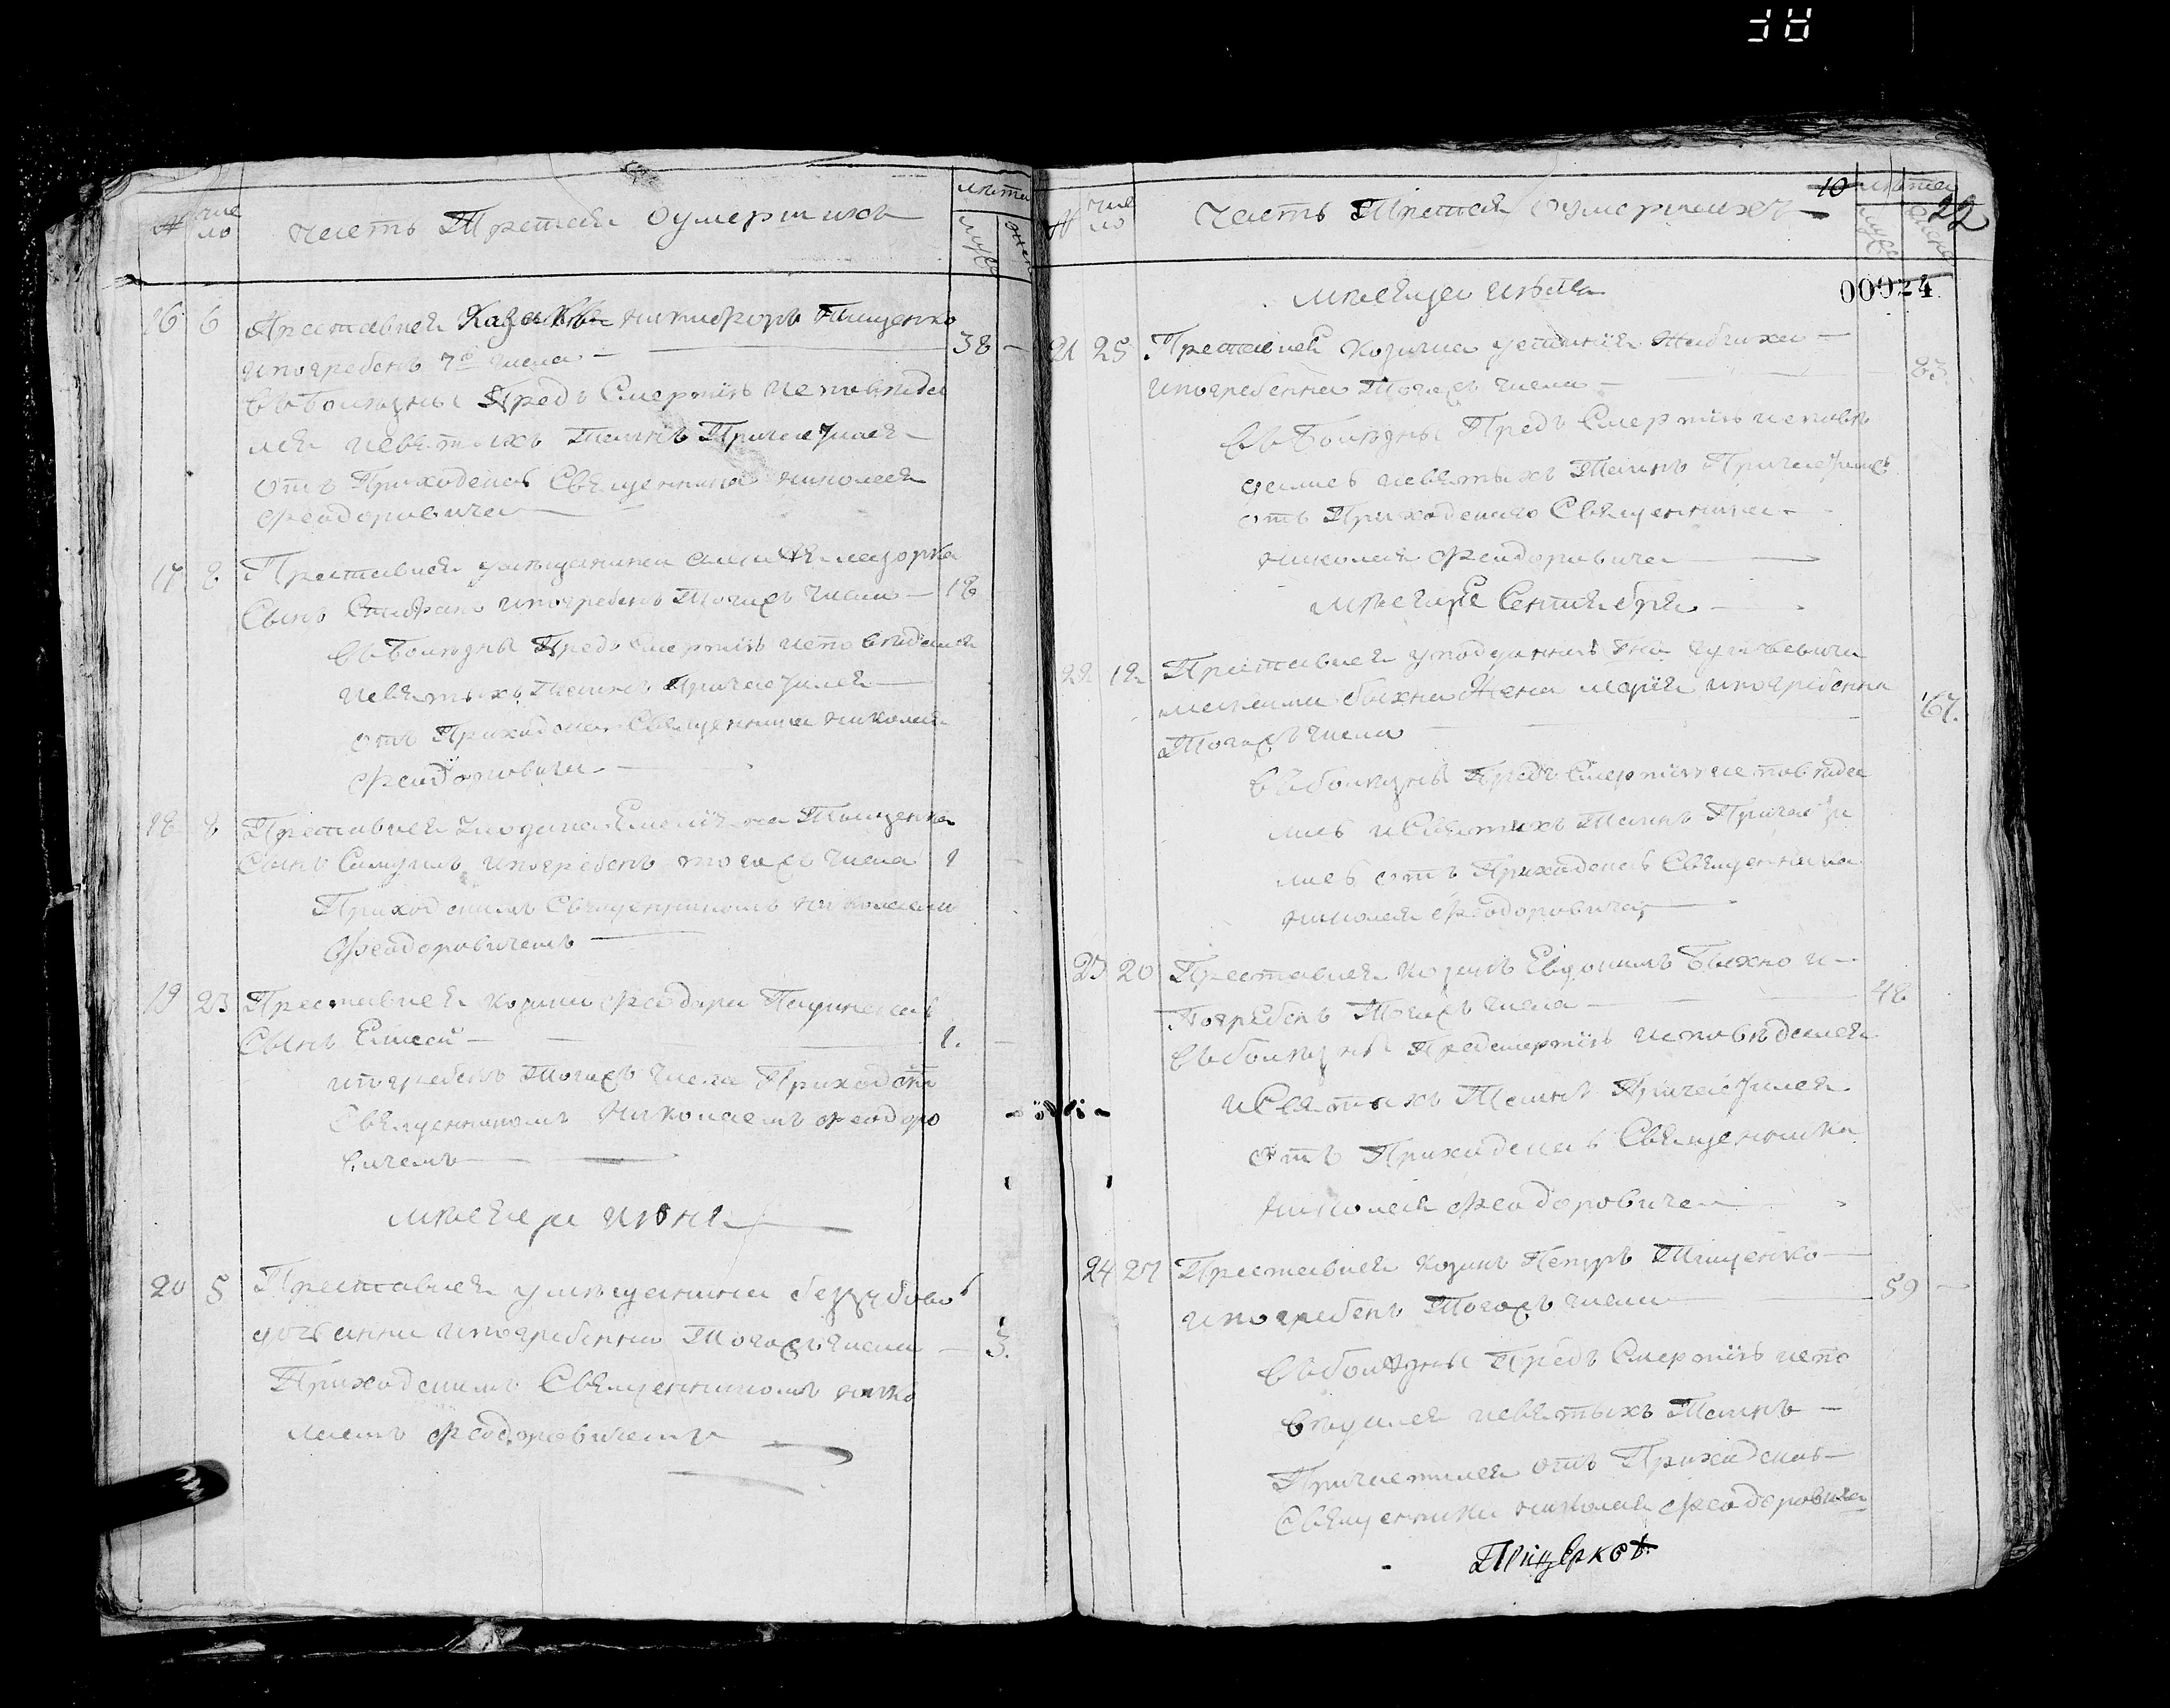 № число Часть Третая оумершихъ лѣта муж жен
16 6 Преставися Казакъ никифоръ тищенко
и погребенъ 7го числа — 38 —
въ болѣзны Предъ Смертїю исповѣда
лся исвятыхъ Таинъ Причастился
отъ Приходскаго Священника николая
Феодоровича
17 8 Преставися умѣщанина
Сынъ Стефанъ ипогребенъ Тогожъ числа — 18
въ болѣзны Предъ Смертїю исповѣдался
исвятыхъ Таинъ Причастился
отъ Приходскаго Священника николая
Феодоровича
18 8 Преставися Емелїяна Тищенка
Сынъ Самуилъ ипогребенъ тогожъ числа 1 —
Приходскимъ Священникомъ николаемъ
Феодоровичемъ
19 23 Преставися козака Феодора
Сынъ Елисей — 1. —
ипогребенъ Тогожъ числа Приходскимъ
Священникомъ Николаемъ Феодоро
вичемъ
мѣсяца июня
20 5 Преставися умѣщанина
дочь анна ипогребенна Тогожъ числа — 3.
Приходскимъ Священникомъ нико
лаемъ Феодоровичемъ
10
22
№ число Часть Третая оумершихъ лѣта муж жен
00024
мѣсяца
21 25 Преставися козачка устинїя
ипогребенна Тогожъ числа — 83.
въ болѣзны Предъ Смертїю исповѣ
далась исвятыхъ Таинъ Причастилась
отъ Приходскаго Священника
николая Феодоровича
мѣсяца Сентября
22 12 Преставися
жена марїя ипогребенна 67.
Тогожъ числа
въ болѣзны Предъ Смертїю исповѣда
лась исвятихъ Таинъ Причасти
лась отъ Приходскаго Священника
николая Феодоровича
23 20 Преставися козакъ Евдокимъ Быхно и
Погребенъ Тогожъ числа — 48
въ болѣзны Предсмертїю исповѣдался
исвятыхъ Таинъ Причастился
отъ Приходскаго Священника
николая Феодоровича
24 27 Преставися козакъ Петръ Тищенко
ипогребенъ Тогожъ числа 59 —
въ болѣзны Предъ Смертїю испо
вѣдался исвятыхъ Таинъ
Причастился отъ Приходскаго
Священника николая Феодоровича